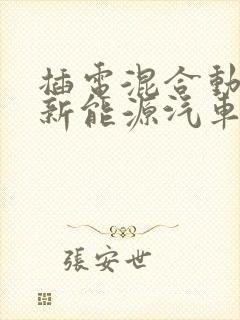 插電混合動
新能源汽車
張安世